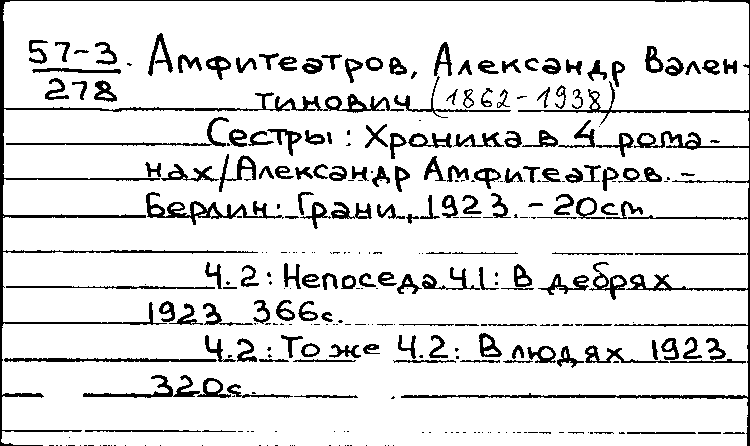 57-3
278
Амфитеатров, Александр Вален-
тинович (1862-1938)
Сестры: Хроника в 4 рома-
нах/Александр Амфитеатров. -
Берлин: Грани, 1923. - 20cm.
Ч.2: Непоседа. Ч.1: В дебрях.
1923 366с.
Ч.2: То же Ч.2: В людях. 1923.
320с.